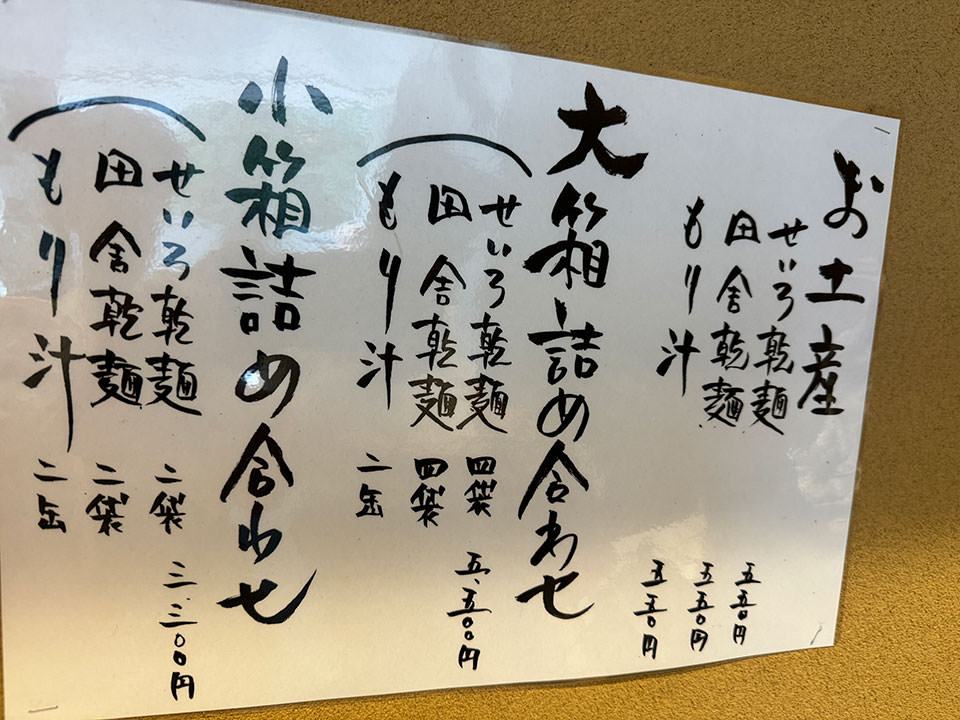 お土産
せいろ乾麺 五五0円
田舎乾麺 五五0円
もり汁 五五0円
大箱詰め合わせ
せいろ乾麺 四袋
田舎乾麺 四袋
もり汁 二缶
五、五00円
小箱詰め合わせ
せいろ乾麺 二袋
田舎乾麺 二袋
もり汁 二缶
三、三00円